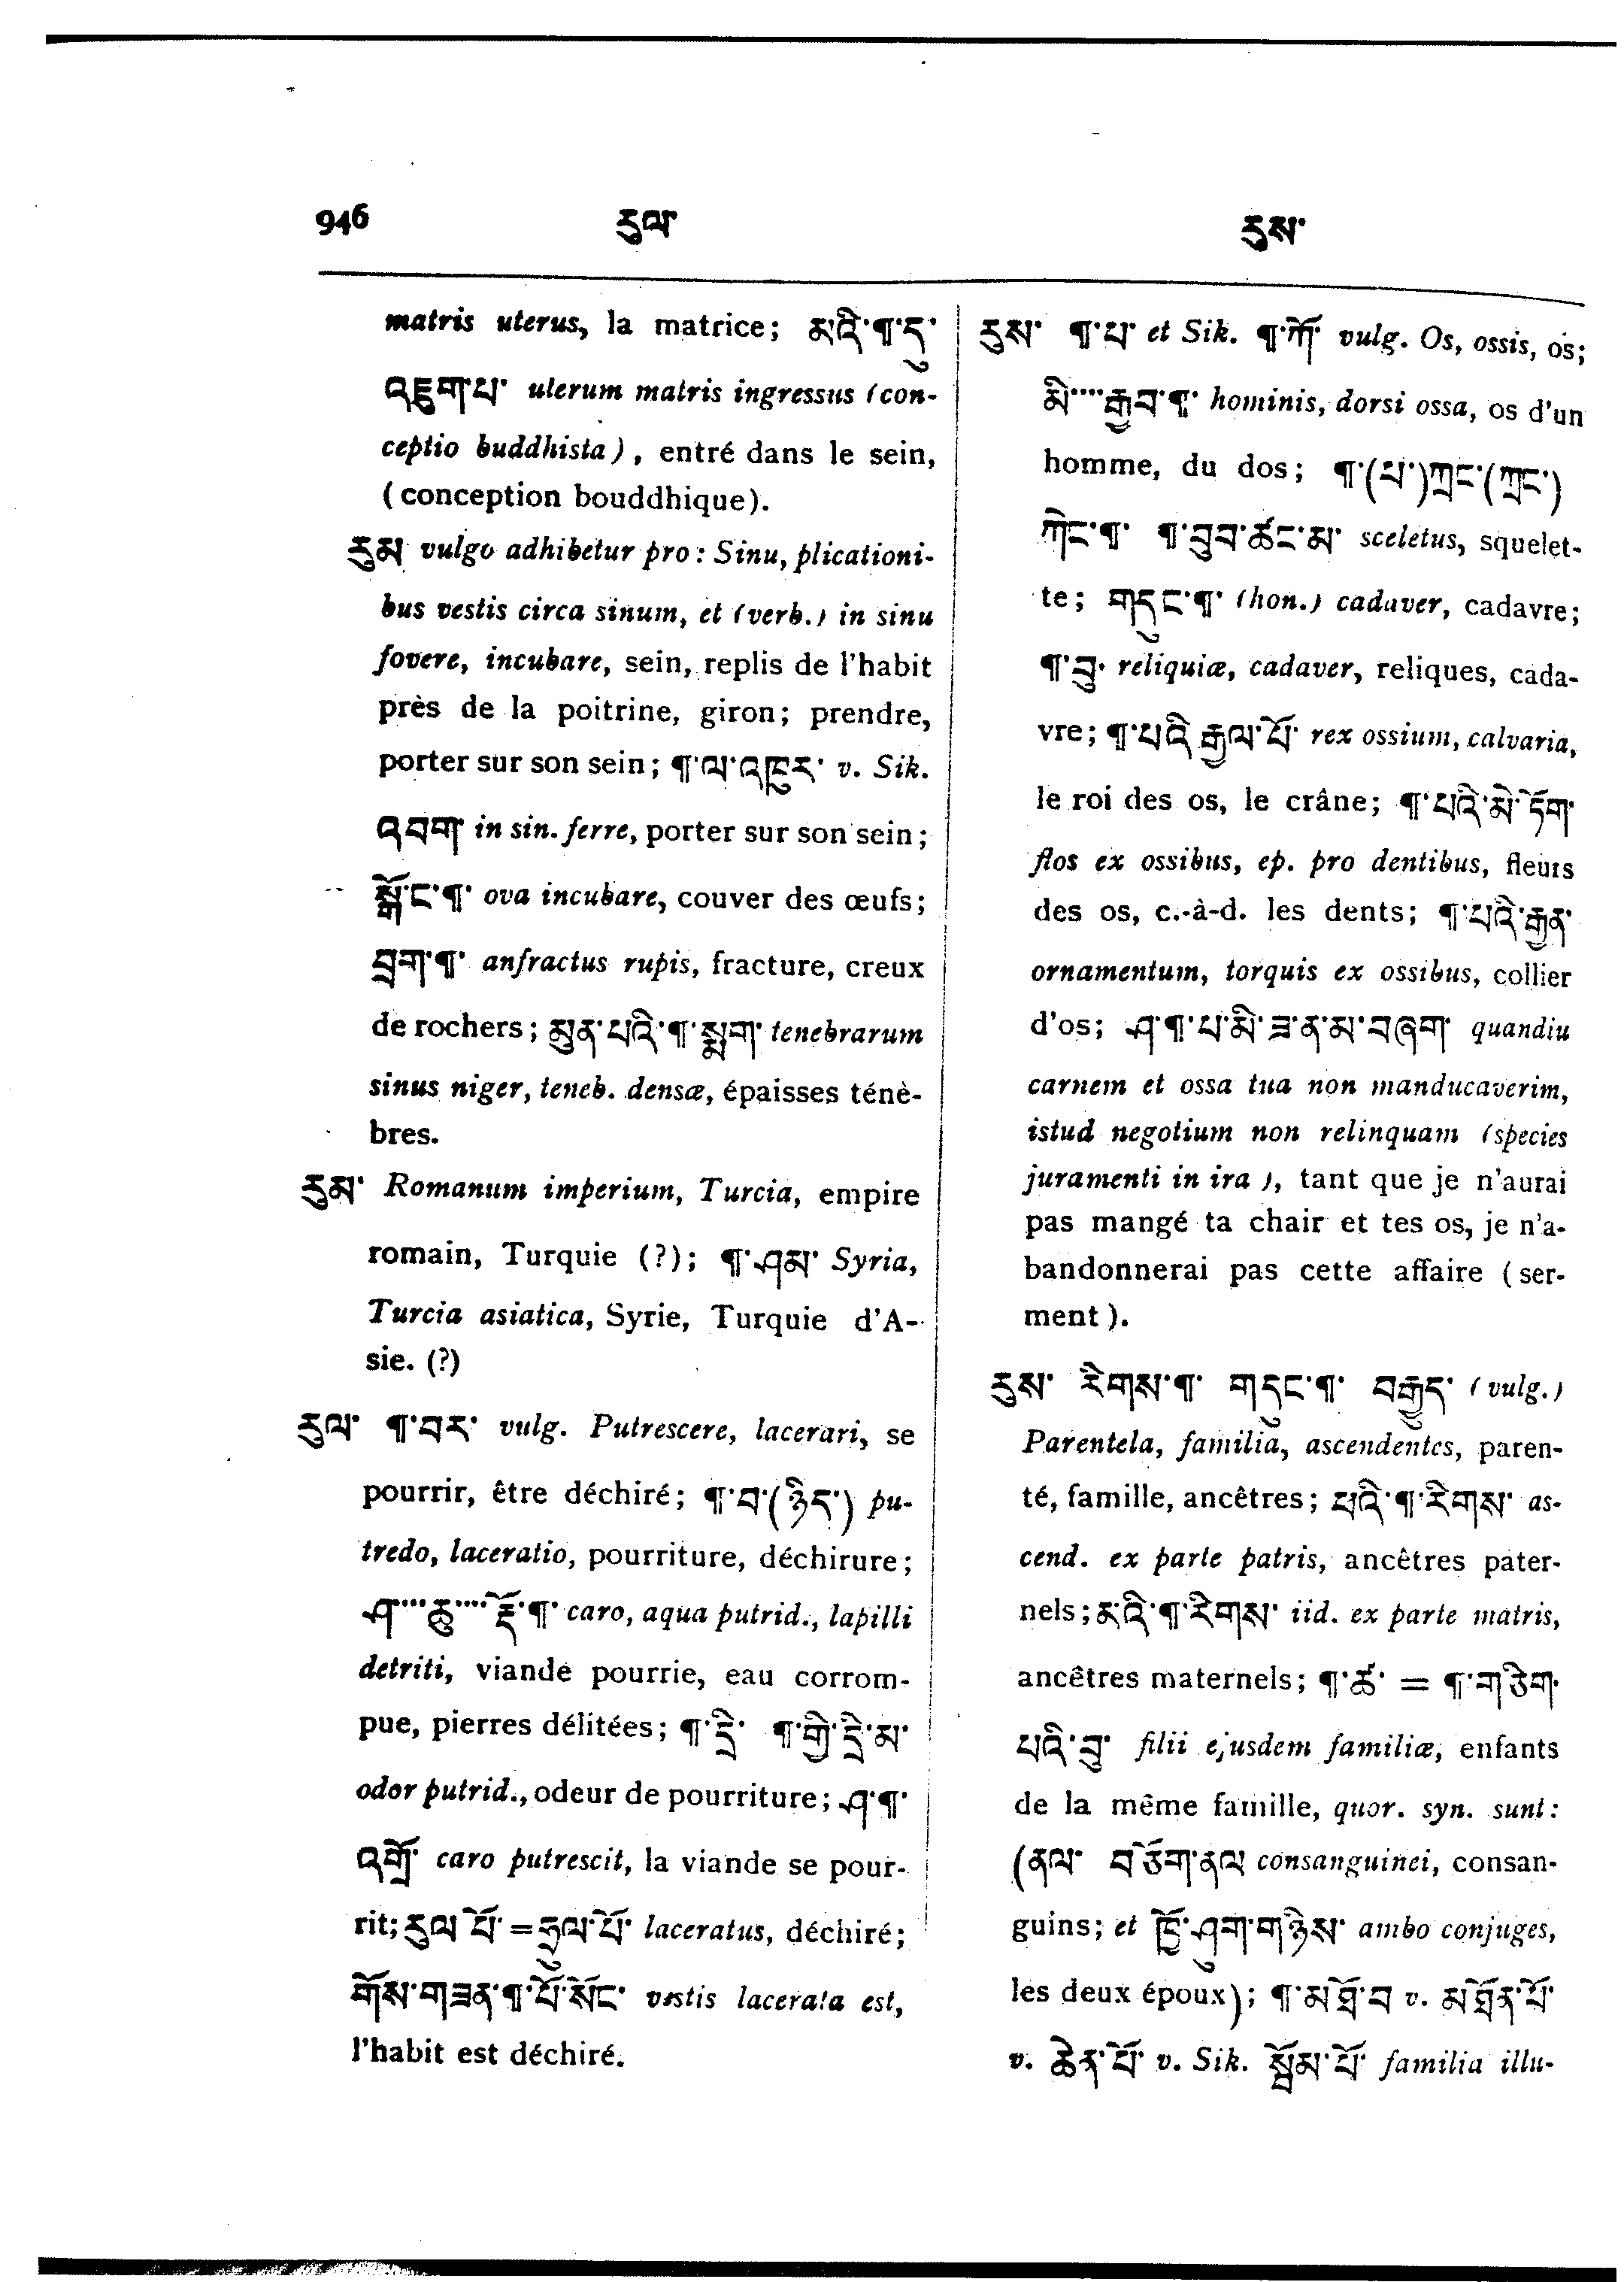 946 རུལ་ རུས་
matris uterus, la matrice; མའི་¶་དུ་
འཇུག་པ་ uterum matris ingressus (con-
ceptio buddhista), entré dans le sein,
(conception bouddhique).
རུམ vulgo adhibetur pro: Sinu, plicationi-
bus vestis circa sinum, et (verb.) in sinu
fovere, incubare, sein, replis de l'habit
près de la poitrine, giron; prendre,
porter sur son sein; ¶་ལ་འཁུར་ v. Sik.
འབག་ in sin. ferre, porter sur son sein;
སྒོ་ང་¶་ ova incubare, couver des œufs;
བྲག་¶་ anfractus rupis, fracture, creux
de rochers; མུན་པའི་¶་སྨག་ tenebrarum
sinus niger, teneb. densæ, épaisses ténè-
bres.
རུམ་ Romanum imperium, Turcia, empire
romain, Turquie (?); ¶་ཤམ་ Syria,
Turcia asiatica, Syrie, Turquie d'A-
sie. (?)
རུལ་ ¶་བར་ vulg. Putrescere, lacerari, se
pourrir, être déchiré; ¶་བ་(ཉིད་) pu-
tredo, laceratio, pourriture, déchirure;
ཤ་···ཆུ་···རྡོ་¶་ caro, aqua putrid., lapilli
detriti, viande pourrie, eau corrom-
pue, pierres délitées; ¶་དྲི་ ¶་གྱི་དྲི་མ་
odor putrid., odeur de pourriture; ཤ་¶་
འགྲོ་ caro putrescit, la viande se pour-
rit; རུལ་པོ་ = ཧྲུལ་པོ་ laceratus, déchiré;
གོས་གཟན་¶་པོ་སོང་ vestis lacerata est,
l'habit est déchiré.
རུས་ ¶་པ་ et Sik. ¶་ཀོ་ vulg. Os, ossis, os;
མི་···རྒྱབ་¶་ hominis, dorsi ossa, os d'un
homme, du dos; ¶་(པ་)ཀྲང་(ཀྲང་)
ཀེང་¶་ ¶་བུབ་ཚང་མ་ sceletus, squelet-
te; གདུང་¶་ (hon.) cadaver, cadavre;
¶་བུ་ reliquiæ, cadaver, reliques, cada-
vre; ¶་པའི་རྒྱལ་པོ་ rex ossium, calvaria,
le roi des os, le crâne; ¶་པའི་མེ་ཏོག་
flos ex ossibus, ep. pro dentibus, fleurs
des os, c.-à-d. les dents; ¶་པའི་རྒྱན་
ornamentum, torquis ex ossibus, collier
d'os; ཤ་¶་པ་མི་ཟ་ན་མ་བཞག་ quandiu
carnem et ossa tua non manducaverim,
istud negotium non relinquam (species
juramenti in ira), tant que je n'aurai
pas mangé ta chair et tes os, je n'a-
bandonnerai pas cette affaire (ser-
ment).
རུས་ རིགས་¶་ གདུང་¶་ བརྒྱུད་ (vulg.)
Parentela, familia, ascendentes, paren-
té, famille, ancêtres; པའི་¶་རིགས་ as-
cend. ex parte patris, ancêtres pater-
nels; མའི་¶་རིགས་ iid. ex parte matris,
ancêtres maternels; ¶་ཚ་ = ¶་གཅིག་
པའི་བུ་ filii ejusdem familiæ, enfants
de la même famille, quor. syn. sunt:
(ནལ་ བཙོག་ནལ་ consanguinei, consan-
guins; et ཁྱོ་ཤུག་གཉིས་ ambo conjuges,
les deux époux); ¶་མཐོ་བ v. མཐོན་པོ་
v. ཆེན་པོ་ v. Sik. སྦོམ་པོ་ familia illu-